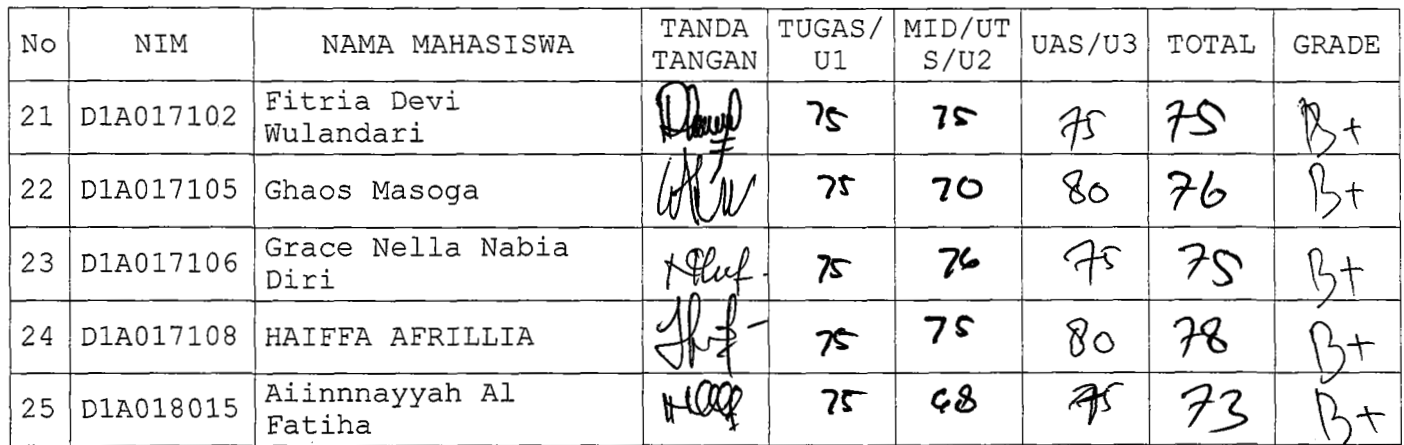 No NIM NAMA MAHASISWA TANDA TANGAN TUGAS/U1 MID/UTS/U2 UAS/U3 TOTAL GRADE
21 D1A017102 Fitria Devi Wulandari 75 75 75 75 B+
22 D1A017105 Ghaos Masoga 75 70 80 76 B+
23 D1A017106 Grace Nella Nabia Diri 75 76 75 75 B+
24 D1A017108 HAIFFA AFRILLIA 75 75 80 78 B+
25 D1A018015 Aiinnnayyah Al Fatiha 75 68 75 73 B+